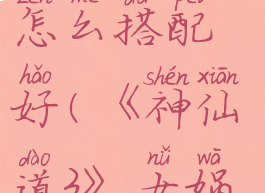 zěn me dā pèi
怎么搭配
hǎo shén xiān
好(《神仙
dào nǚ wā
道3》女娲